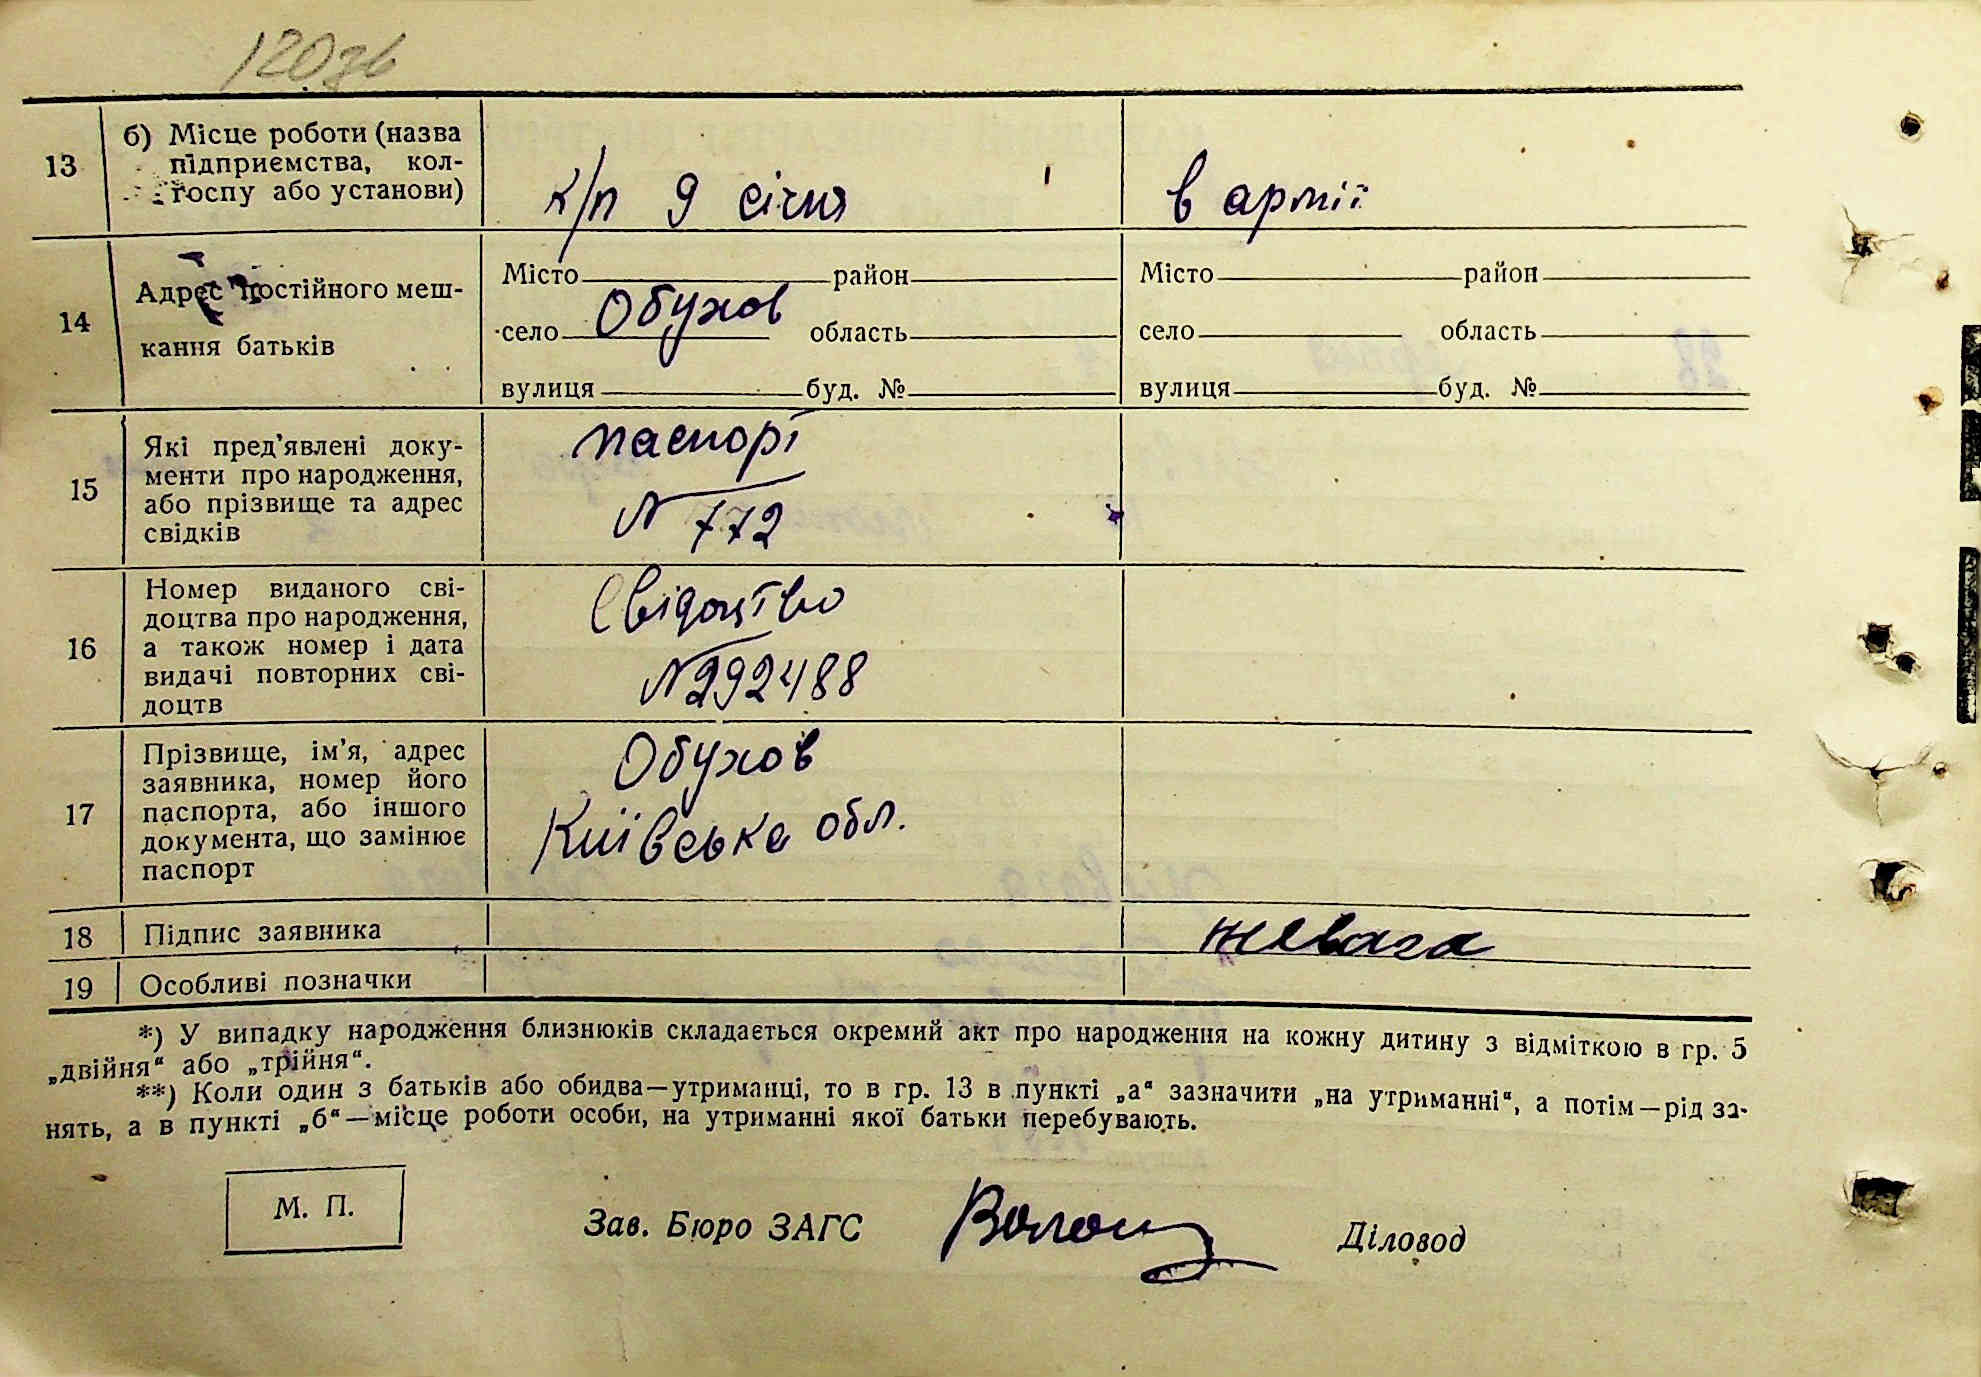 120зв
13
б) Місце роботи (назва
підприємства, кол-
госпу або установи)
к/п 9 січня
в армії
14
Адрес постійного меш-
кання батьків
Місто район
село Обухов область
вулиця буд. №
Місто район
село область
вулиця буд. №
15
Які пред'явлені доку-
менти про народження,
або прізвище та адрес
свідків
паспорт
N 772
16
Номер виданого сві-
доцтва про народження,
а також номер і дата
видачі повторних сві-
доцтв
Свідоцтво
N292488
17
Прізвище, ім'я, адрес
заявника, номер його
паспорта, або іншого
документа, що замінює
паспорт
Обухов
Київська обл.
18
Підпис заявника
Жевага
19
Особливі позначки
*) У випадку народження близнюків складається окремий акт про народження на кожну дитину з відміткою в гр. 5
„двійня“ або „трійня“.
**) Коли один з батьків або обидва—утриманці, то в гр. 13 в пункті „а“ зазначити „на утриманні“, а потім—рід за-
нять, а в пункті „б“—місце роботи особи, на утриманні якої батьки перебувають.
М. П.
Зав. Бюро ЗАГС
Діловод